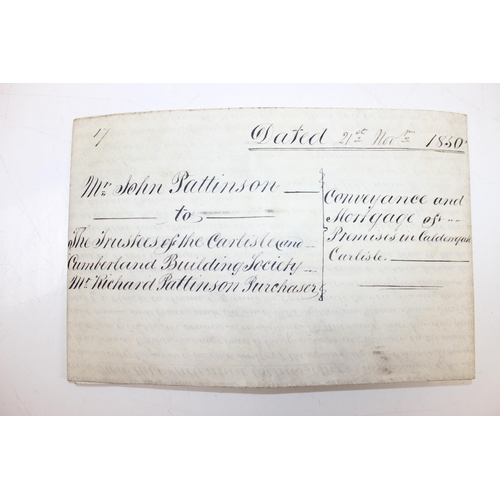 17
Dated 21st Novr 1850
Mr John Pattinson
to
The Trustees of the Carlisle and
Cumberland Building Society
Mr Richard Pattinson Purchaser
Conveyance and
Mortgage of
Premises in Caldewgate
Carlisle.